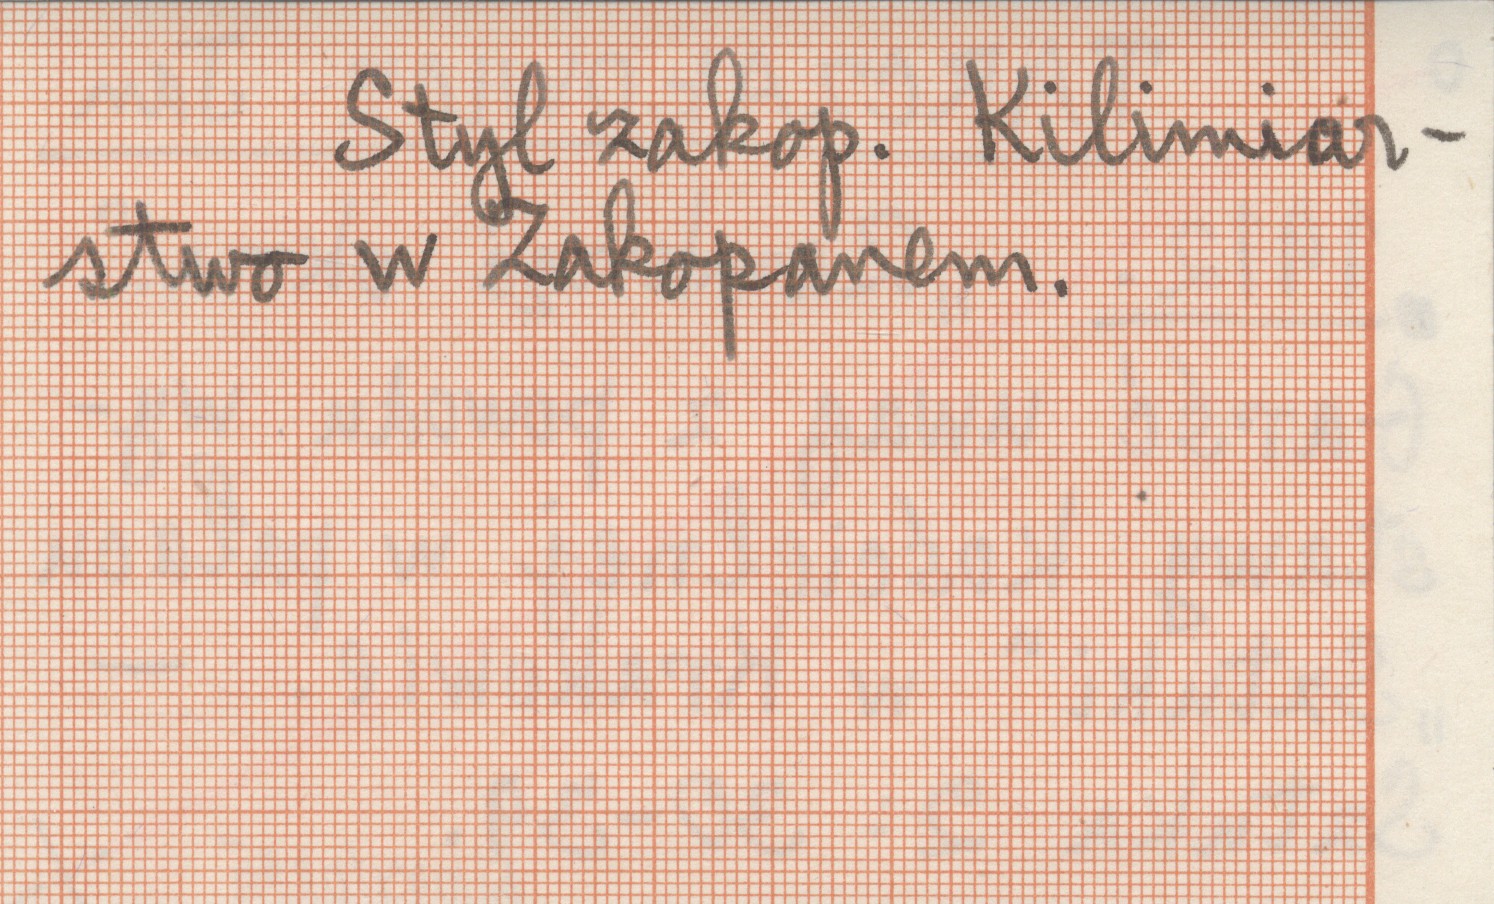 Styl zakop. Kilimiar-
stwo w Zakopanem.